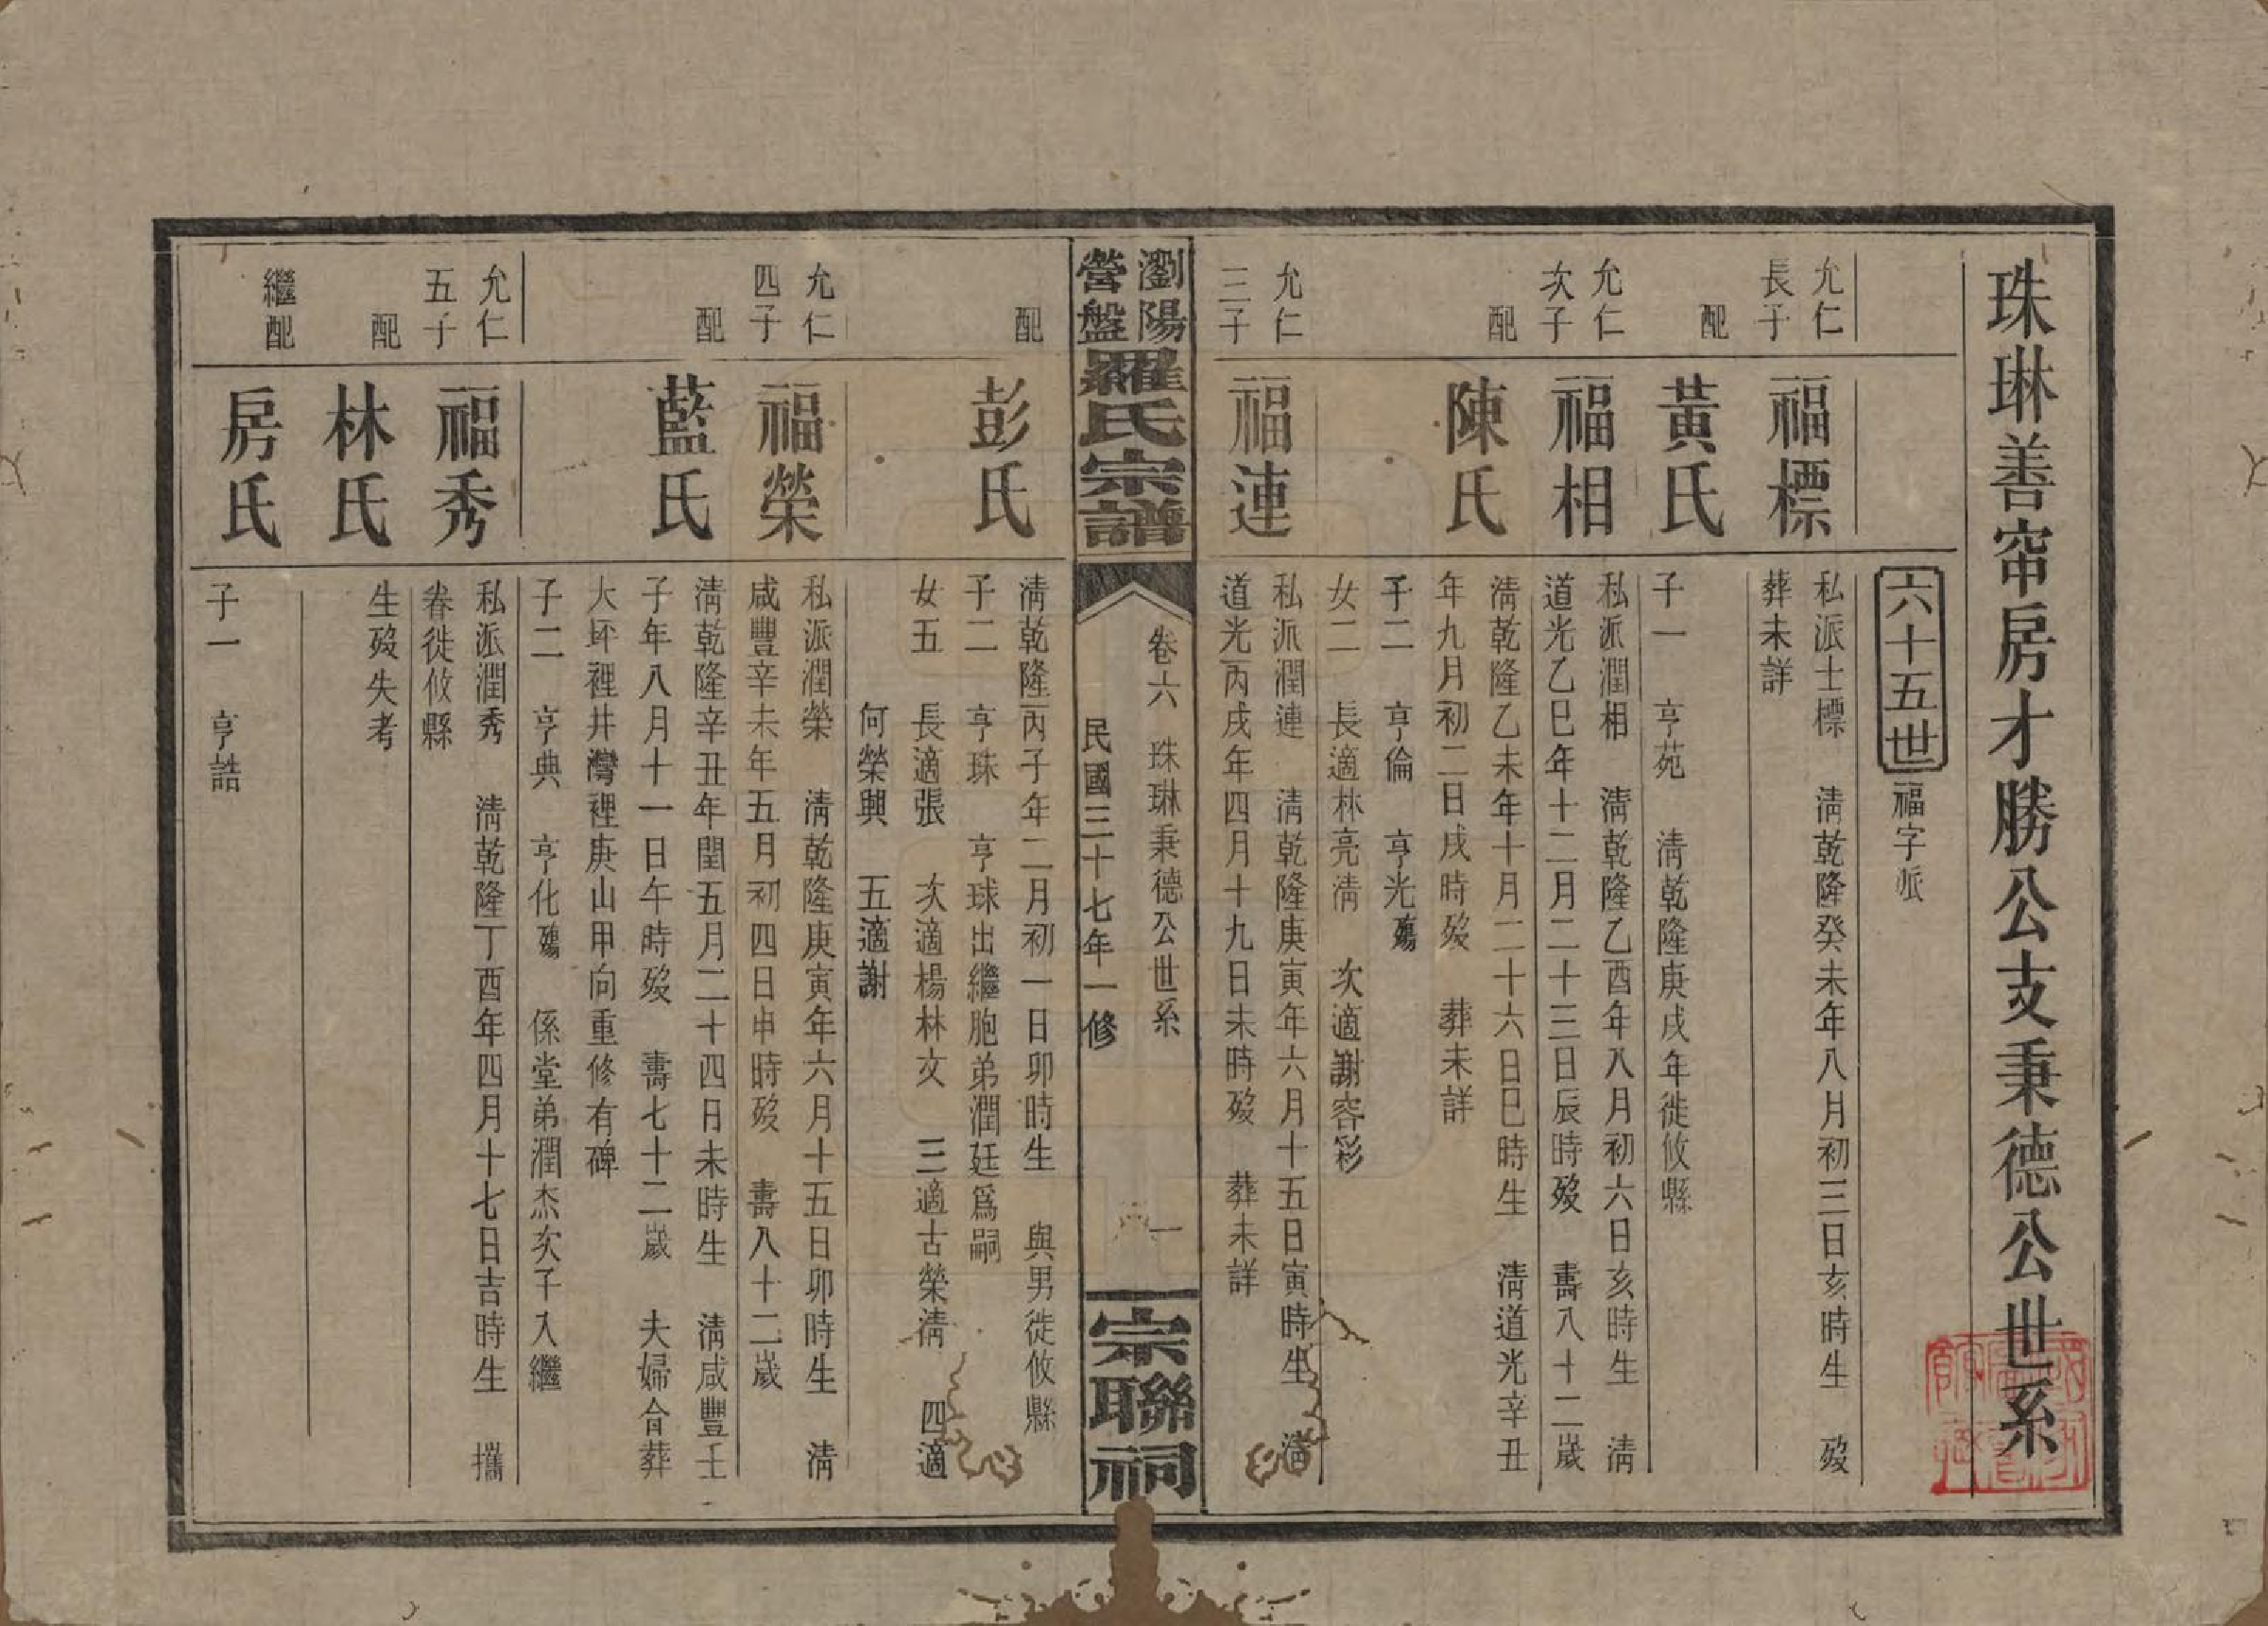 珠琳善窜房才勝公支秉德公世系
六十五世 福字派
允仁長子 福標 私派士標 清乾隆癸未年八月初三日亥時生 歿
葬未詳
配 黃氏 子一 亨苑 清乾隆庚戌年徙攸縣
允仁次子 福相 私派潤相 清乾隆乙酉年八月初六日亥時生 清
道光乙巳年十二月二十三日辰時歿 壽八十二歲
配 陳氏 清乾隆乙未年十月二十六日巳時生 清道光辛丑
年九月初二日戌時歿 葬未詳
子二 亨倫 亨光殤
女二 長適林亮清 次適謝容彩
允仁三子 福連 私派潤連 清乾隆庚寅年六月十五日寅時生 清
道光丙戌年四月十九日未時歿 葬未詳
瀏陽營盤羅氏宗譜
卷六 珠琳秉德公世系 一
民國三十七年一修
宗聯祠
配 彭氏 清乾隆丙子年二月初一日卯時生 與男徙攸縣
子二 亨珠 亨球出繼胞弟潤廷爲嗣
女五 長適張 次適楊林文 三適古榮清 四適
何榮興 五適謝
允仁四子 福榮 私派潤榮 清乾隆庚寅年六月十五日卯時生 清
咸豐辛未年五月初四日申時歿 壽八十二歲
配 藍氏 清乾隆辛丑年閏五月二十四日未時生 清咸豐壬
子年八月十一日午時歿 壽七十二歲 夫婦合葬
大坪裡井灣裡庚山甲向重修有碑
子二 亨典 亨化殤 係堂弟潤杰次子入繼
允仁五子 福秀 私派潤秀 清乾隆丁酉年四月十七日吉時生 攜
眷徙攸縣
配 林氏 生歿失考
繼配 房氏 子一 亨誥